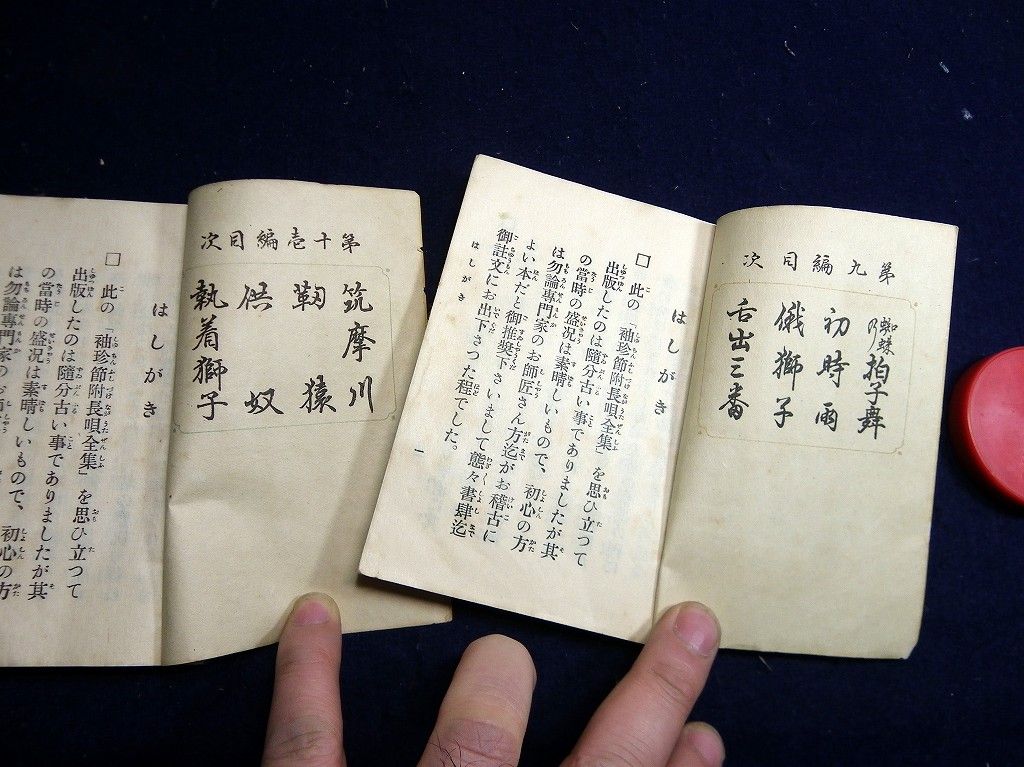 第九編目次
蜘蛛拍子舞
初時雨
俄獅子
舌出三番
はしがき
□ 此の「袖珍節附長唄全集」を思ひ立つて
出版したのは隨分古い事でありましたが其
の當時の盛況は素晴しいもので、初心の方
は勿論專門家のお師匠さん方迄がお稽古に
よい本だと御推奬下さいまして態々書肆迄
御註文にお出下さつた程でした。
はしがき 一
第十壱編目次
筑摩川
靭猿
供奴
執着獅子
はしがき
□ 此の「袖珍節附長唄全集」を思ひ立つて
出版したのは隨分古い事でありましたが其
の當時の盛況は素晴しいもので、初心の方
は勿論專門家のお